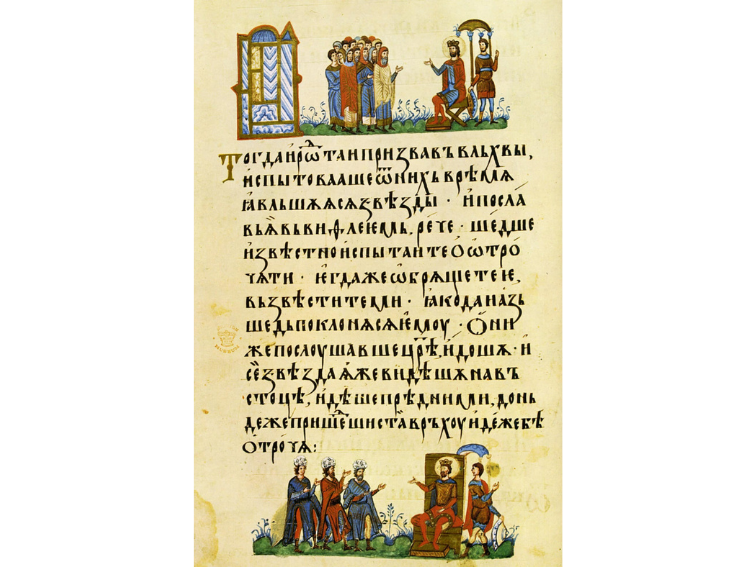 Тогда ирѡ҃ таи призвавъ влъхвы,
испытовааше ѿ нихъ врѣмѧ
ꙗвльшѫѧ сѧ звѣзды · и посла
вь виѳлеіемь, рече · шедше
извѣстно испытаите о ѡтро
чѧти · егда же ѡбрѧщете іе,
възвѣстите ми · ꙗко да и азь
шедь поклонѧ сѧ іемоу · Ѻни
же послоушавше цр҃ѣ, идошѧ · и
се звѣзда ѫже видѣшѧ на въ
стоцѣ, идѣше прѣд ними, донь
деже пришьдьши ста врьхоу идеже бѣ
отрочѧ :